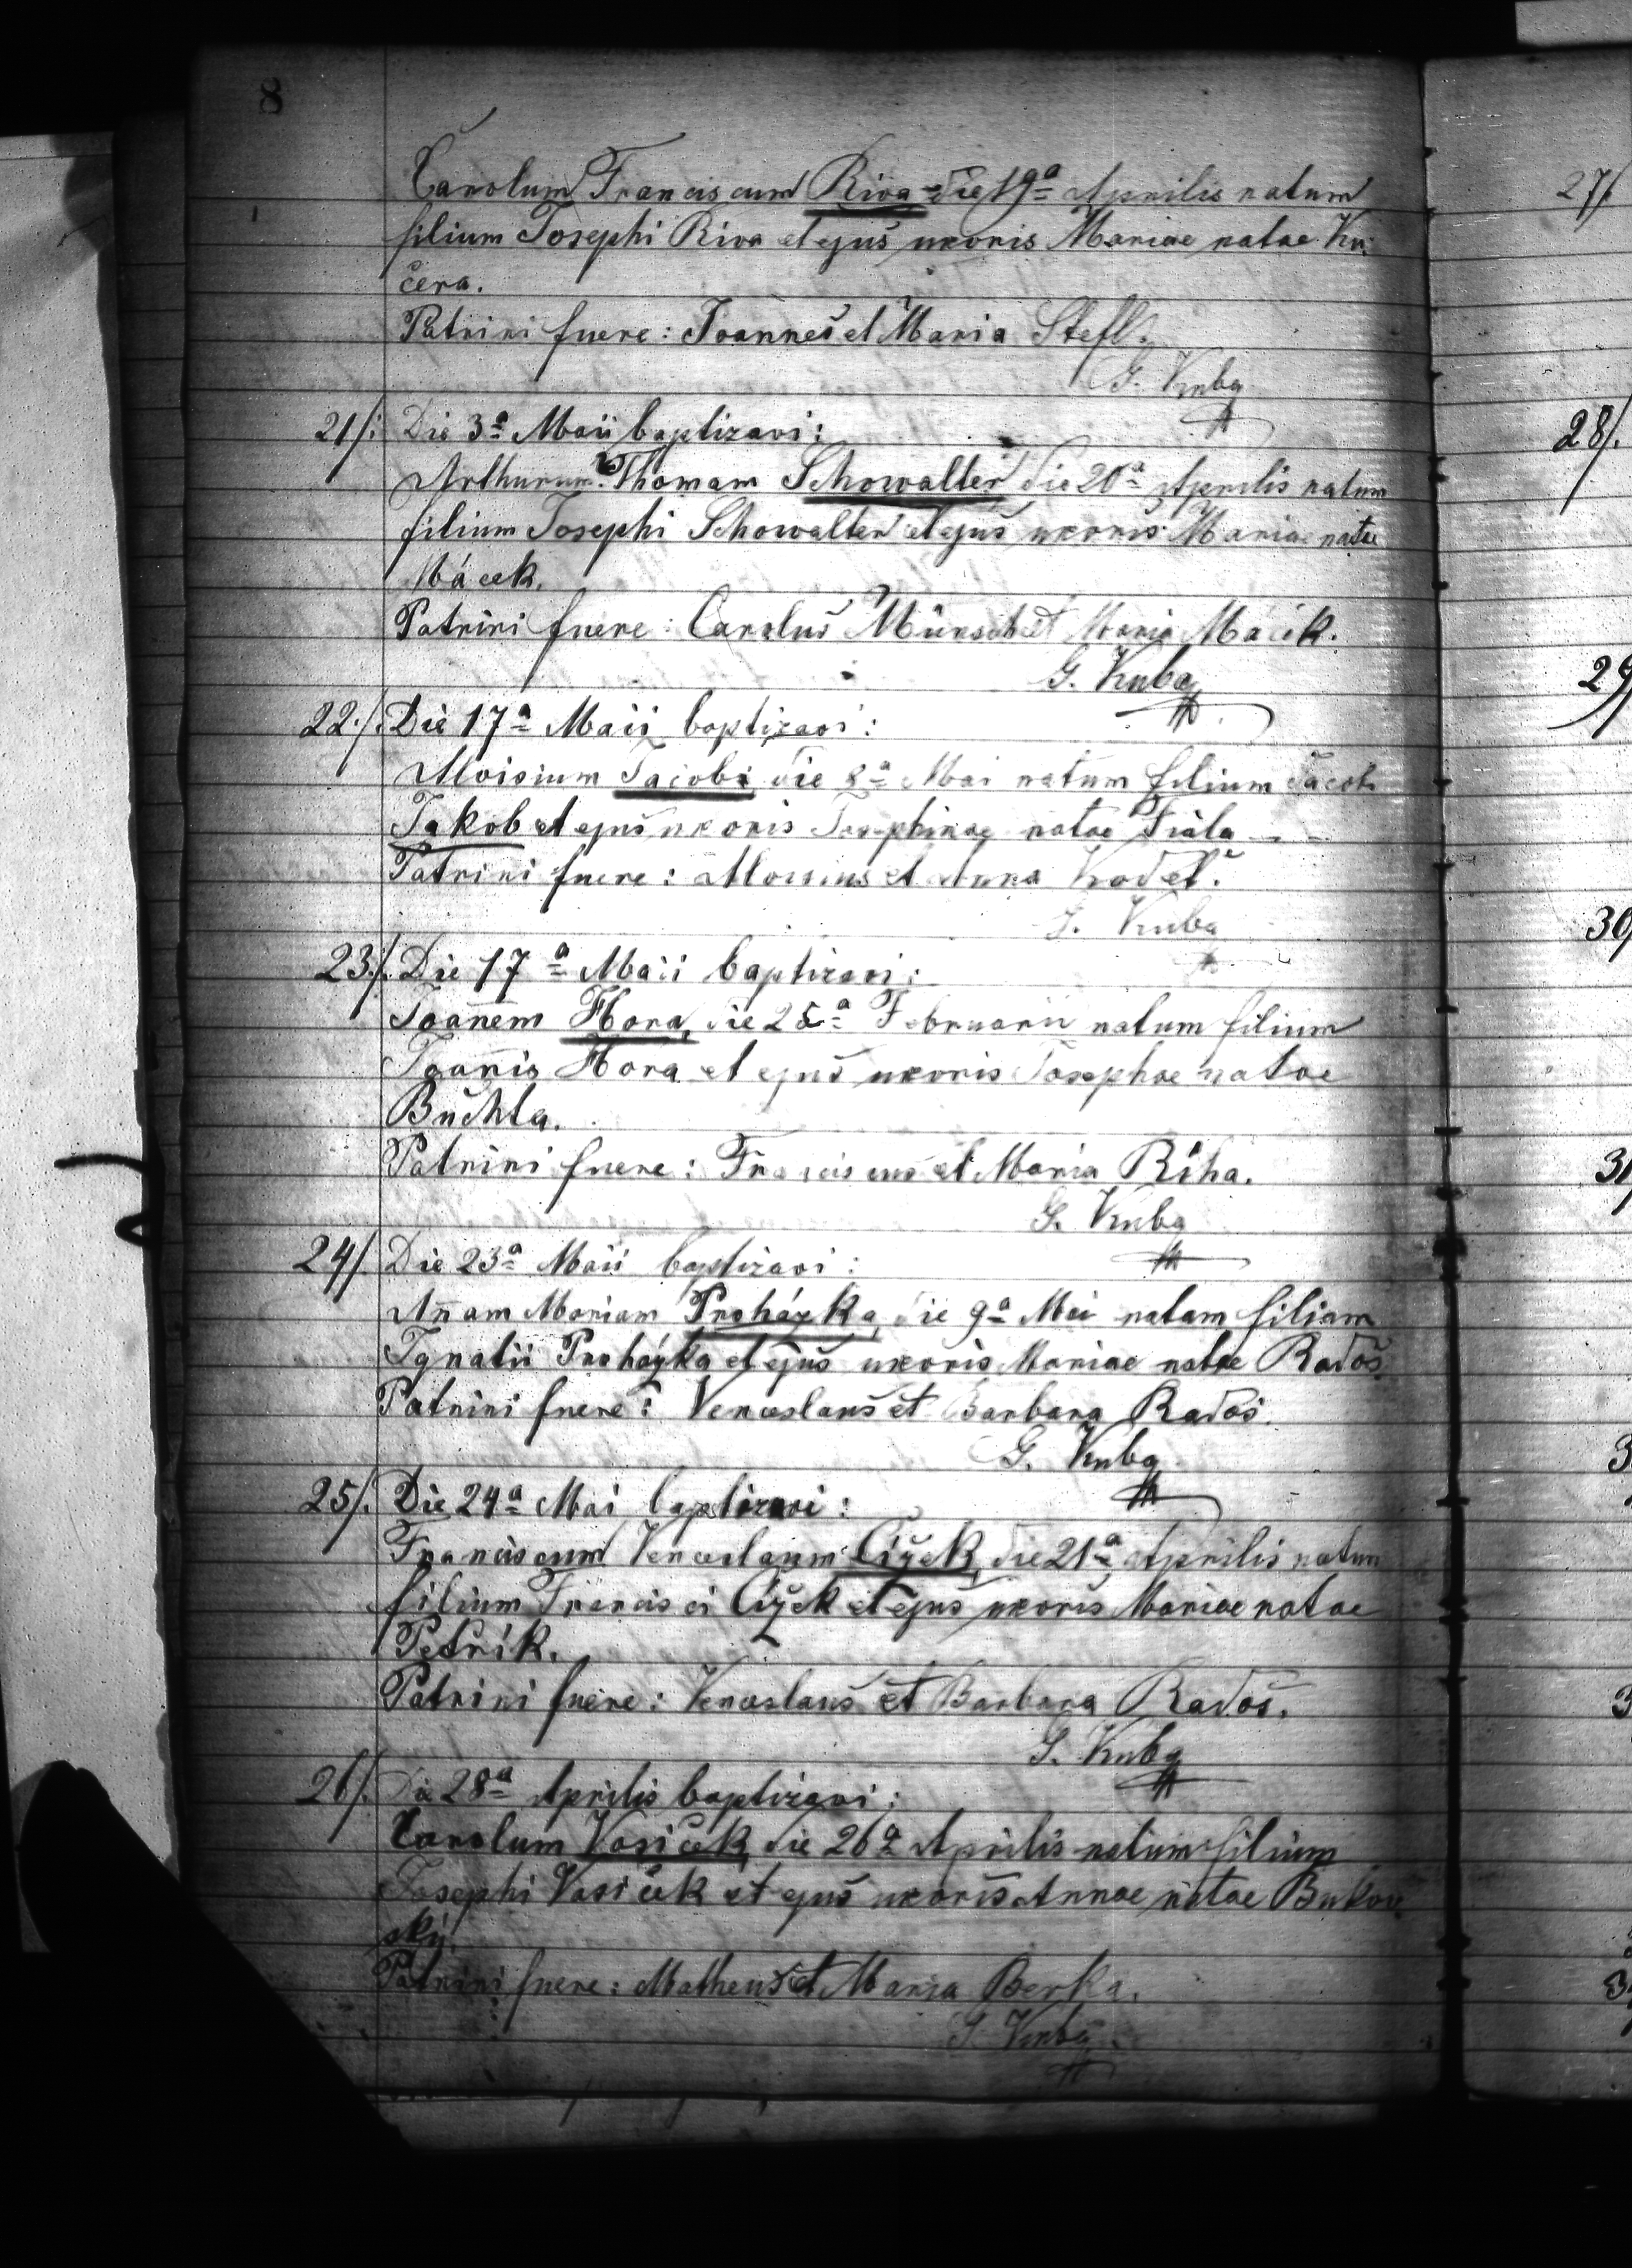 8
Carolum Franciscum Riva die 19ª Aprilis natum
filium Josephi Riva et ejus uxoris Mariae natae Ku-
čera.
Patrini fuere: Joannes et Maria Stefl.
G. Kuba
21/. Die 3ª Maii baptizavi:
Arthurum Thomam Schowalter die 20ª Aprilis natum
filium Josephi Schowalter et ejus uxoris Mariae natae
Mácek.
Patrini fuere: Carolus Münsch et Maria Macek.
G. Kuba
22./. Die 17ª Maii baptizavi:
Aloisium Jacobi die 8ª Mai natum filium Jacobi
Jakob et ejus uxoris Josephinae natae Fiala
Patrini fuere: Aloisius et Anna Kodet.
G. Kuba
23/. Die 17ª Maii baptizavi:
Joannem Hora, die 25ª Februarii natum filium
Joannis Hora et ejus uxoris Josephae natae
Buchta.
Patrini fuere: Franciscus et Maria Riha.
G. Kuba
24/. Die 23ª Maii baptizavi:
Annam Mariam Proházka, die 9ª Mai natam filiam
Ignatii Proházka et ejus uxoris Mariae natae Radoš.
Patrini fuere: Venceslaus et Barbara Radoš.
G. Kuba
25/. Die 24ª Mai baptizavi:
Franciscum Venceslaum Cižek, die 21ª Aprilis natum
filium Francisci Cižek et ejus uxoris Mariae natae
Petrík.
Patrini fuere: Venceslaus et Barbara Radoš.
G. Kuba
26/. Die 28ª Aprilis baptizavi:
Carolum Vosiček, die 26ª Aprilis natum filium
Josephi Vosiček et ejus uxoris Annae natae Bukov-
ský.
Patrini fuere: Matheus et Maria Berka.
G. Kuba
27/.
28/.
29/
30/
31/
3
3
3